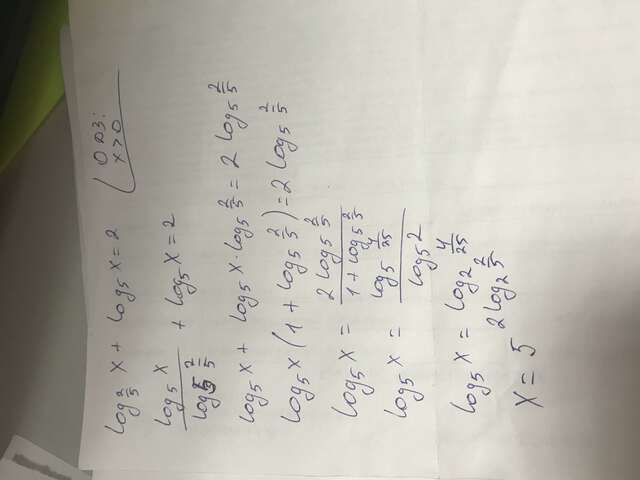 log_{2/5} x + log_5 x = 2 (ОДЗ: x>0
\frac{log_5 x}{log_5 \frac{2}{5}} + log_5 x = 2
log_5 x + log_5 x · log_5 \frac{2}{5} = 2 log_5 \frac{2}{5}
log_5 x (1 + log_5 \frac{2}{5}) = 2 log_5 \frac{2}{5}
log_5 x = \frac{2 log_5 \frac{2}{5}}{1 + log_5 \frac{2}{5}}
log_5 x = \frac{log_5 \frac{4}{25}}{log_5 2}
log_5 x = log_2 \frac{4}{25}
2 log_2 \frac{2}{5}
x = 5